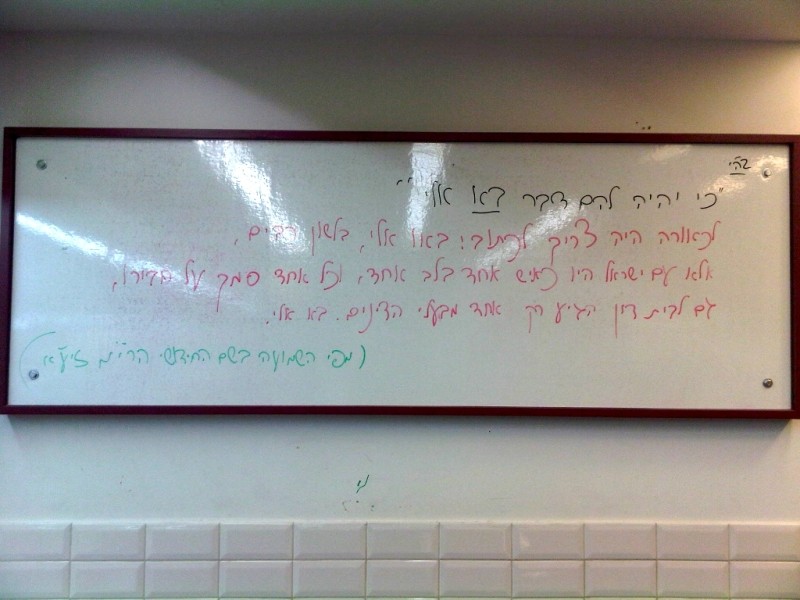 בה"י
"כי יהיה להם דבר בא אלי"
לכאורה היה צריך לכתוב: באו אלי, בלשון רבים,
אלא עם ישראל היו כאיש אחד בלב אחד, וכל אחד סמך על חבירו,
גם לבית דין הגיע רק אחד מבעלי הדינים. בא אלי.
(מפי השמועה בשם החידושי הרי"ם זיע"א)